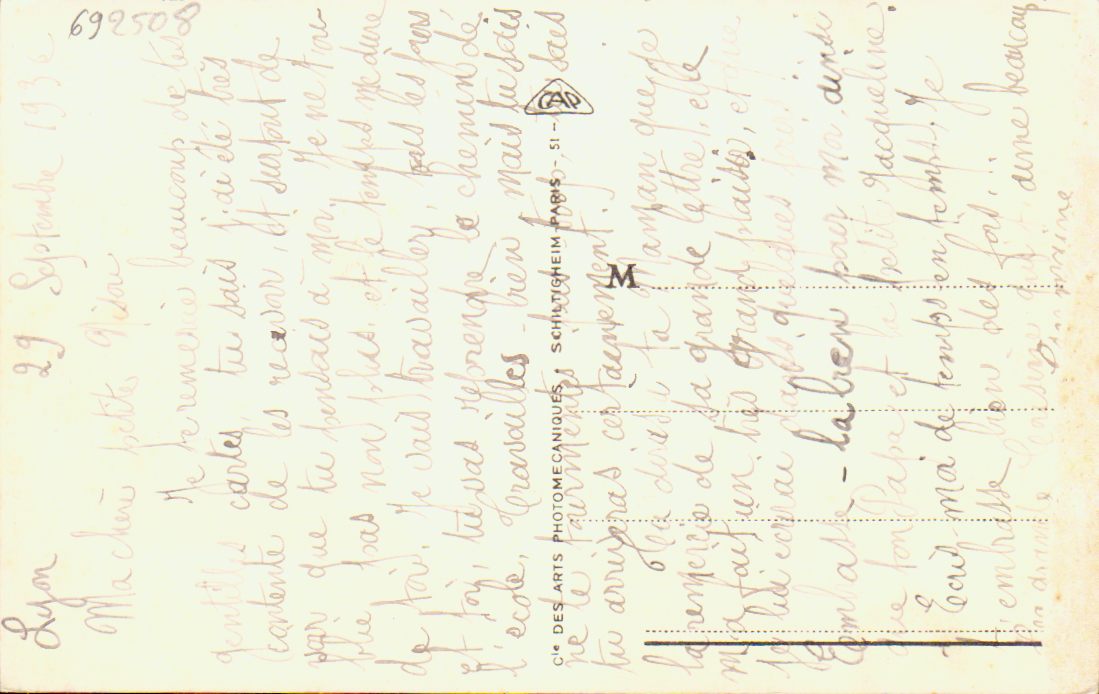 692508
Lyon 29 Septembre 1936
Ma chère petite
Je te remercie beaucoup de tes
gentilles cartes, tu sais j'ai été très
contente de les recevoir, et surtout de
voir que tu pensais à moi. Je ne t'ou-
blie pas non plus, et le temps me dure
de toi. Je vais travailler tous les jours
et toi, tu vas reprendre le chemin de
l'école. Travailles bien mais tu sais
ne te tourmentes
tu arriveras certainement.
Tu diras à ta maman que je
la remercie de sa grande lettre, elle
m'a fait un très grand plaisir, et que
je lui écrirai dans quelques
Embrasse-la bien pour moi, ainsi
que ton Papa et la petite Jacqueline.
Ecris-moi de temps en temps. Je
t'embrasse bien des fois.
Ta grande Cousine qui t'aime beaucoup
Cie DES ARTS PHOTOMECANIQUES - SCHILTIGHEIM-PARIS - 51 -
CAP
M